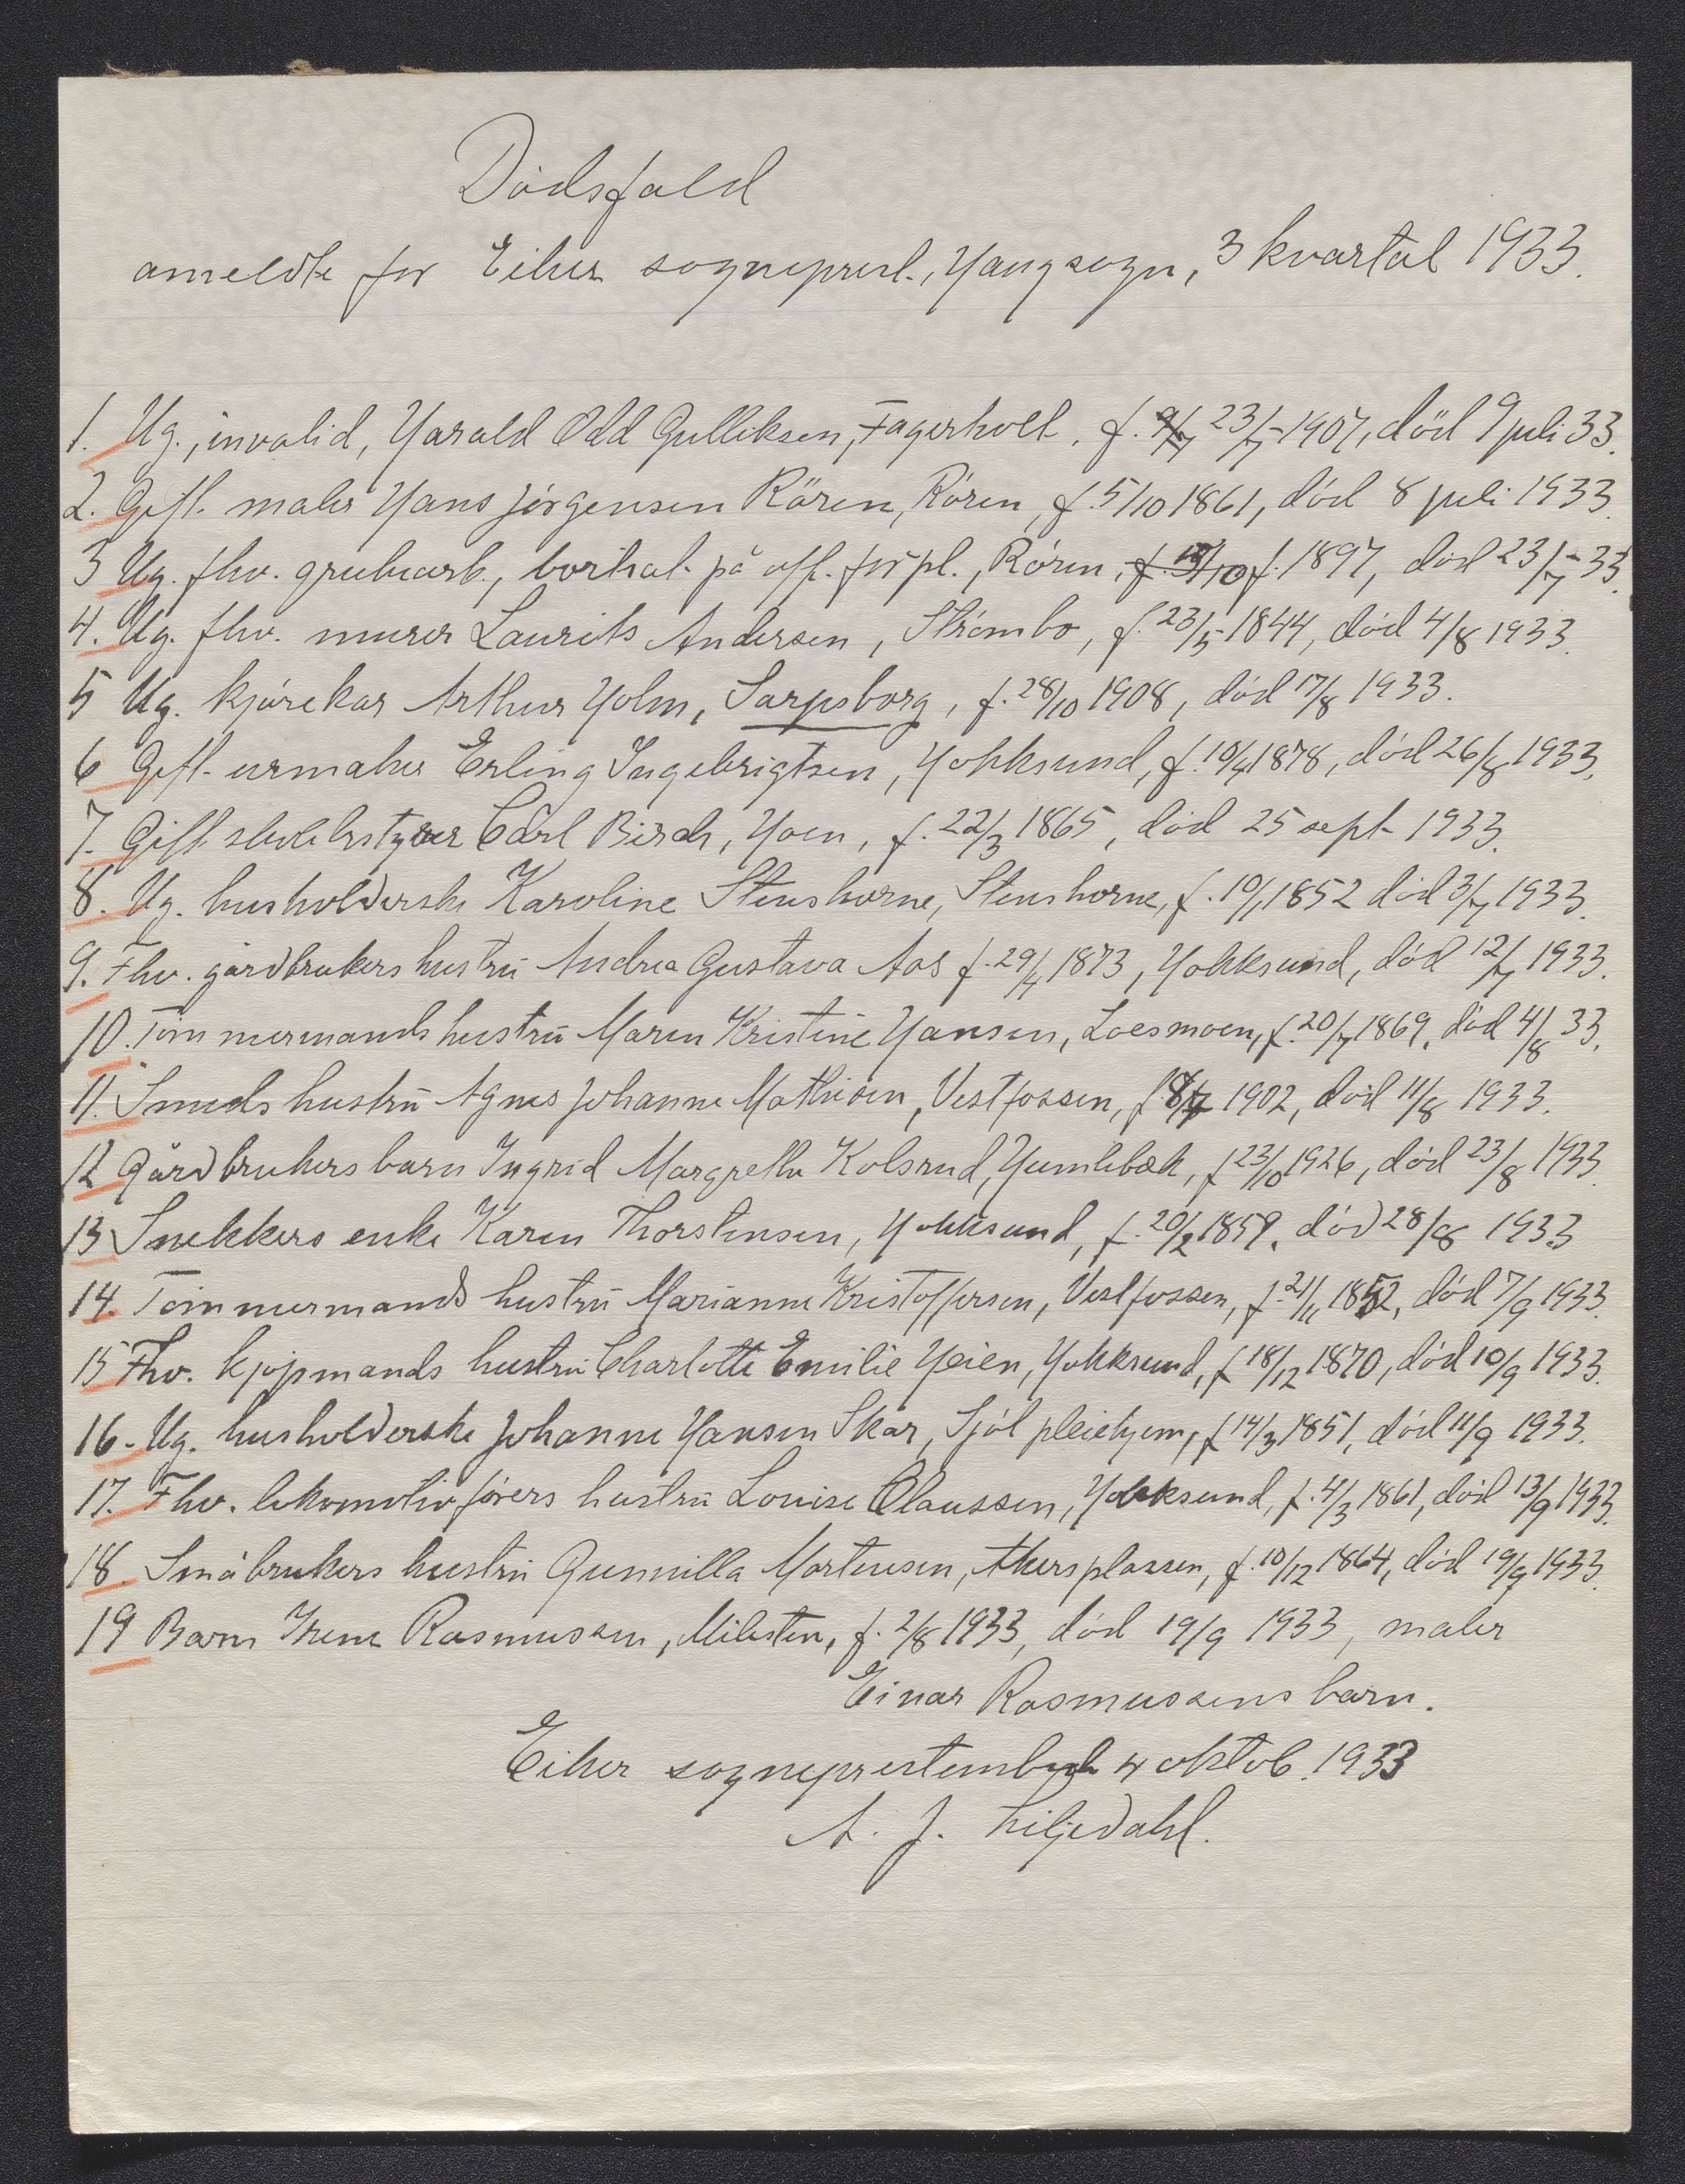 Dödsfald
anmeldte for Eiker sogneprest., Haug sogn, 3 kvartal 1933.
1. Ug., invalid, Harald Odd Gulliksen, Fagerholt, f. 23/7-1907, död 9 juli 33.
2. Gift. maler Hans Jörgensen Rören, Rören, f. 5/10 1861, död 8 juli 1933.
3 Ug. fhv. grubearb., bortsat på off. forpl., Rören, f. 1897, död 23/7-33.
4. Ug. fhv. murer Laurits Andersen, Strömbo, f. 23/5 1844, död 4/8 1933.
5 Ug. kjörekar Arthur Holm, Sarpsborg, f. 28/10 1908, död 17/8 1933.
6 Gift. urmaker Erling Ingebrigtsen, Hokksund, f. 10/4 1878, död 26/8 1933.
7. Gift Carl Birch, Hoen, f. 22/3 1865, död 25 sept. 1933.
8. Ug. husholderske Karoline Stenshorne, Stenshorne, f. 10/1 1852 död 3/7 1933.
9. Fhv. gårdbrukers hustru Andrea Gustava Aas f. 29/4 1873, Hokksund, död 12/7 1933.
10. Tömmermands hustru Maren Kristine Hansen, Loesmoen, f. 20/7 1869, död 4/8 33.
11. Smeds hustru Agnes Johanne Mathisen, Vestfossen, f 8/7 1902, död 11/8 1933.
12 Gårdbrukers barn Ingrid Margrethe Kolsrud, Humlebæk, f 23/10 1926, död 23/8 1933.
13 Snekkers enke Karen Thorstensen, Hokksund, f. 20/2 1859, död 28/8 1933
14. Tömmermands hustru Marianne Kristoffersen, Vestfossen, f. 21/11 1852, död 7/9 1933.
15 Fhv. kjöpmands hustru Charlotte Emilie Heien, Hokksund, f 18/12 1870, död 10/9 1933.
16. Ug. husholderske Johanne Hansen Skar, Sjöl pleiehjem, f 14/3 1851, död 11/9 1933.
17. Fhv. lokomotivförers hustru Louise Claussen, Hokksund, f. 4/3 1861, död 13/9 1933.
18. Småbrukers hustru Gunnilla Martensen, Åkersplassen, f. 10/12 1864, död 19/9 1933.
19 Barn Irene Rasmussen, Milesten, f. 2/8 1933, död 19/9 1933, maler
Einar Rasmussens barn.
Eiker sogneprestembede 4 oktob. 1933
A. J. Liljedahl.